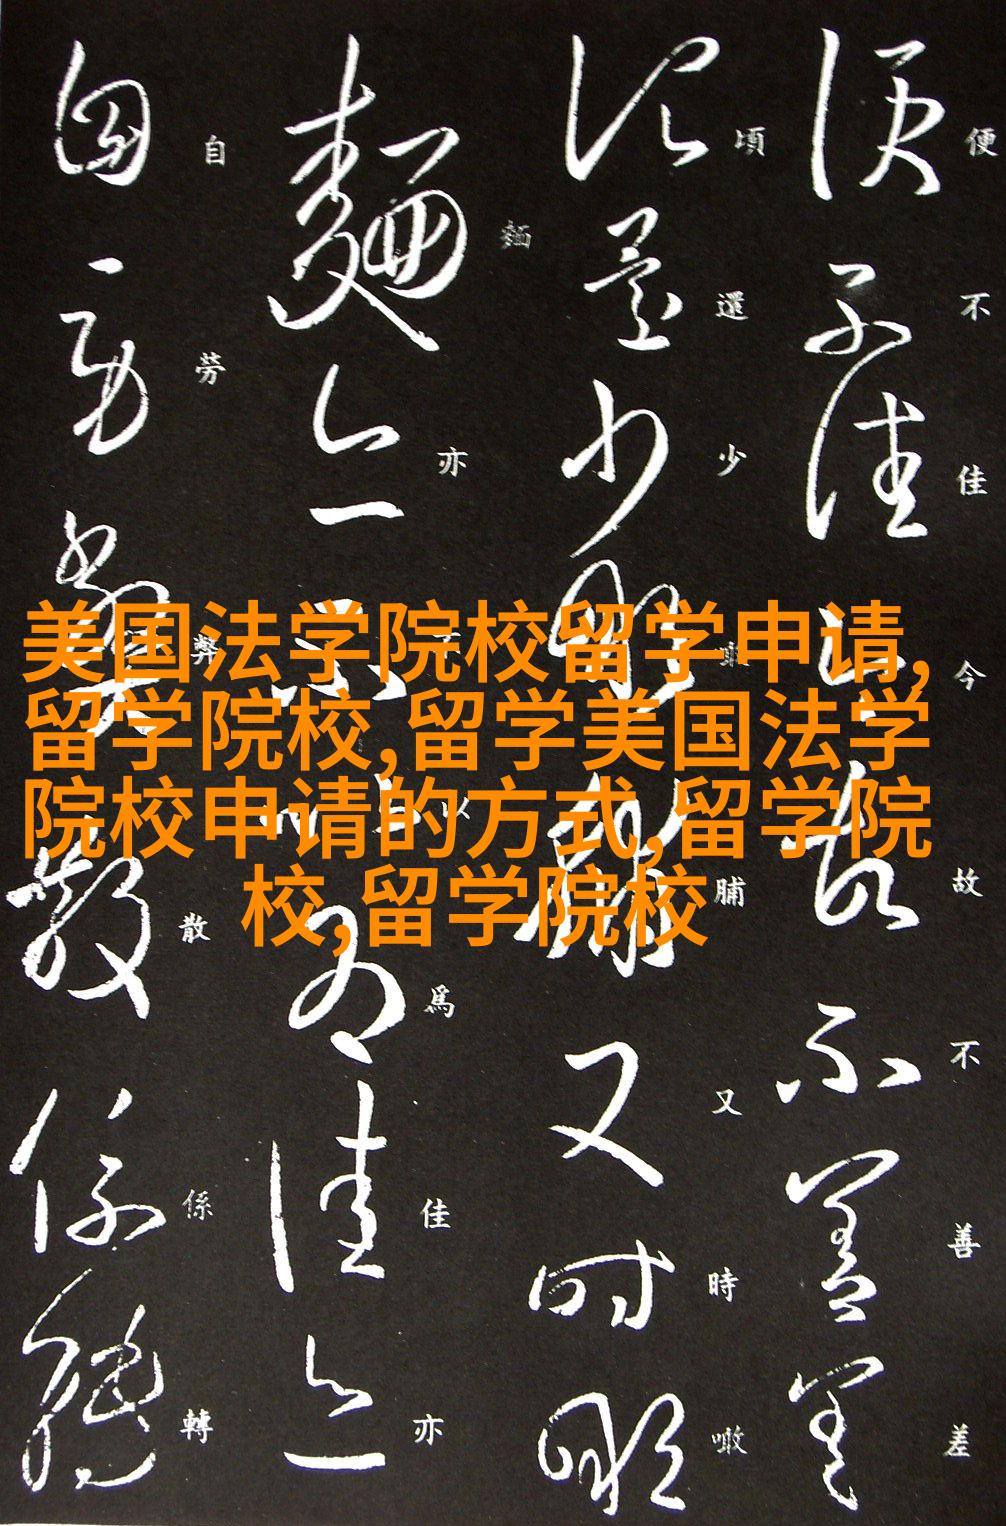 美国法学院校留学申请,
留学院校,留学美国法学
院校申请的方式,留学院
校,留学院校
便不佳今故不善差
頃還少噉脯又時噉
麵亦不以爲佳亦
自勞弊散係轉